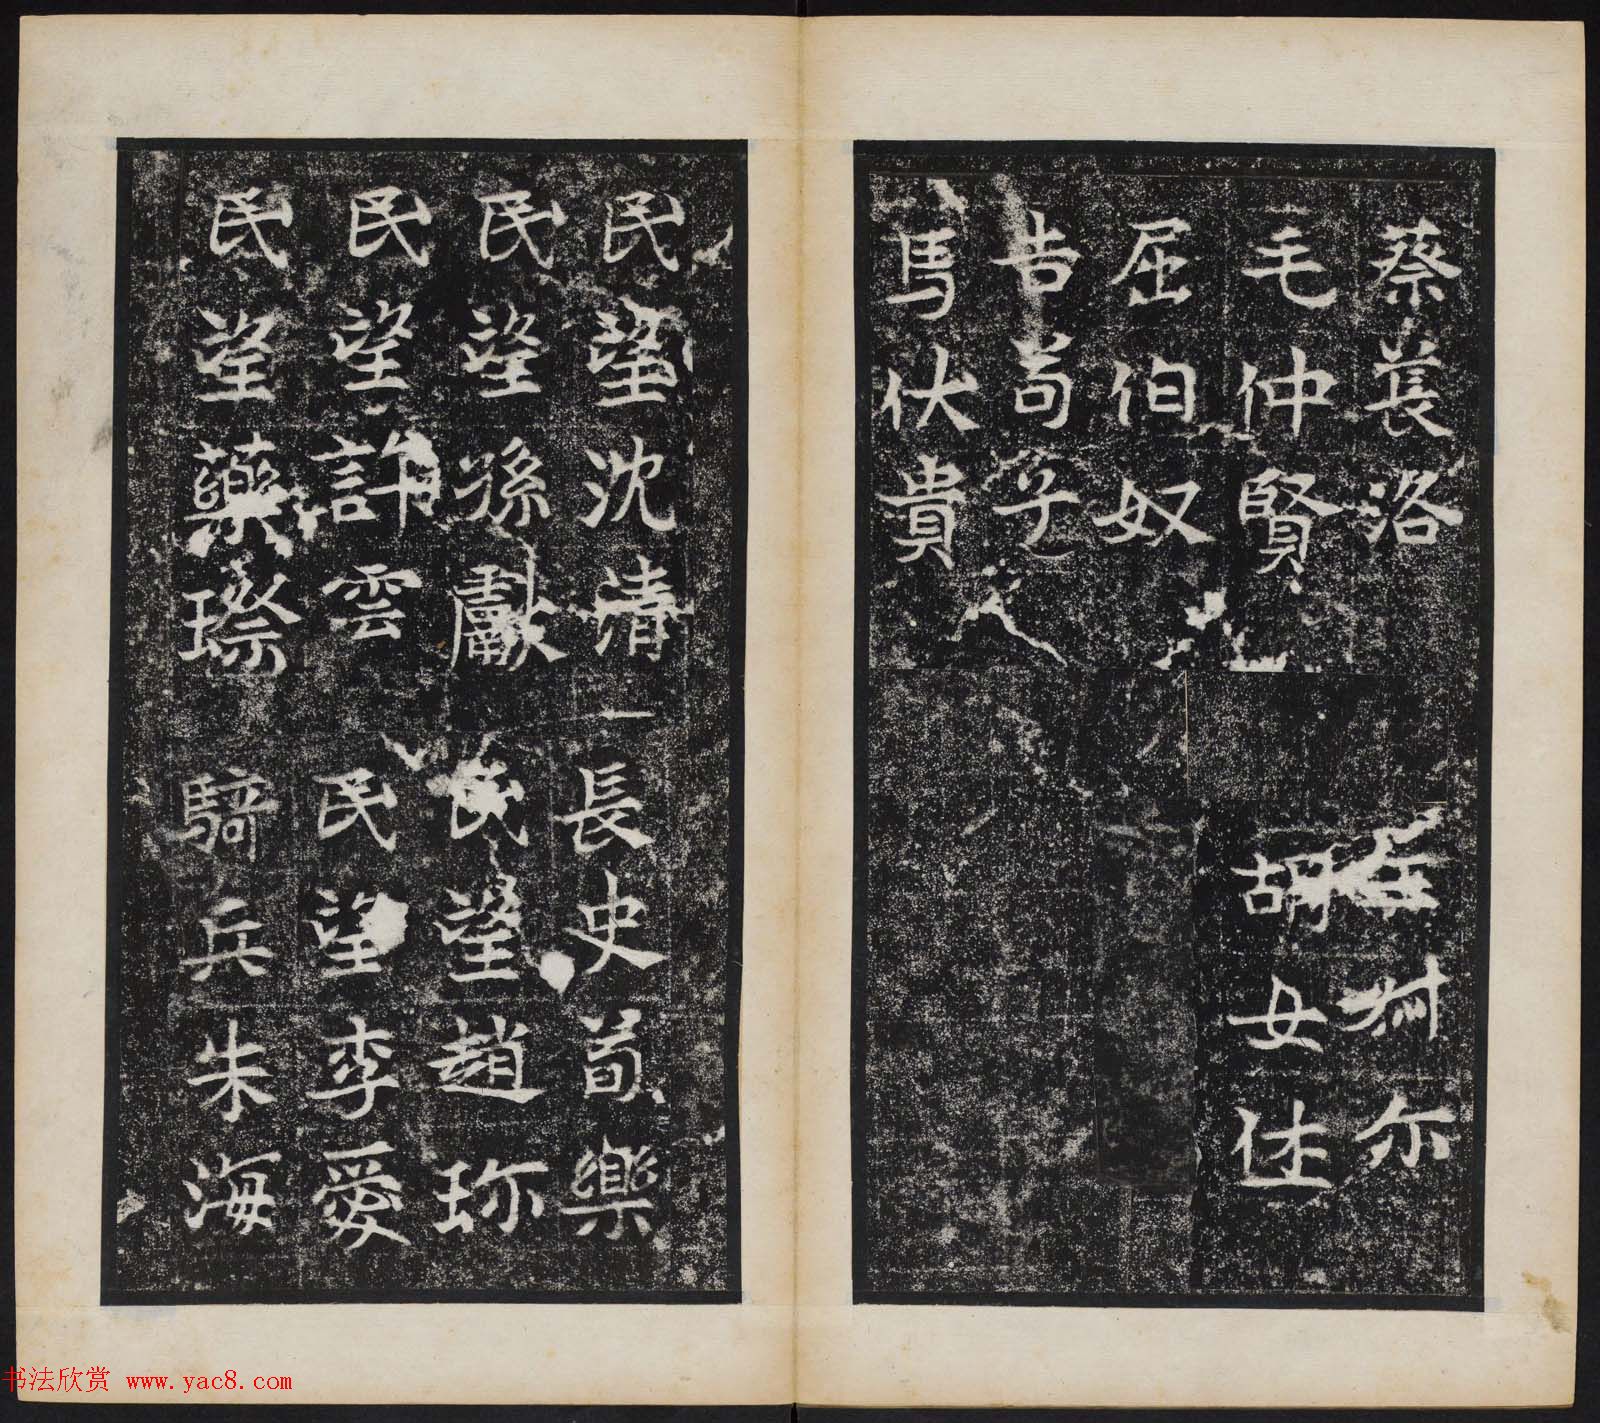 蔡萇洛
毛仲賢
屈伯奴
吉苟子
馬伏貴
尔
胡女佳
民望沈清
民望孫獻
民望許雲
民望藥璨
長史荀樂
民望趙珎
民望李愛
騎兵朱海
书法欣赏 www.yac8.com